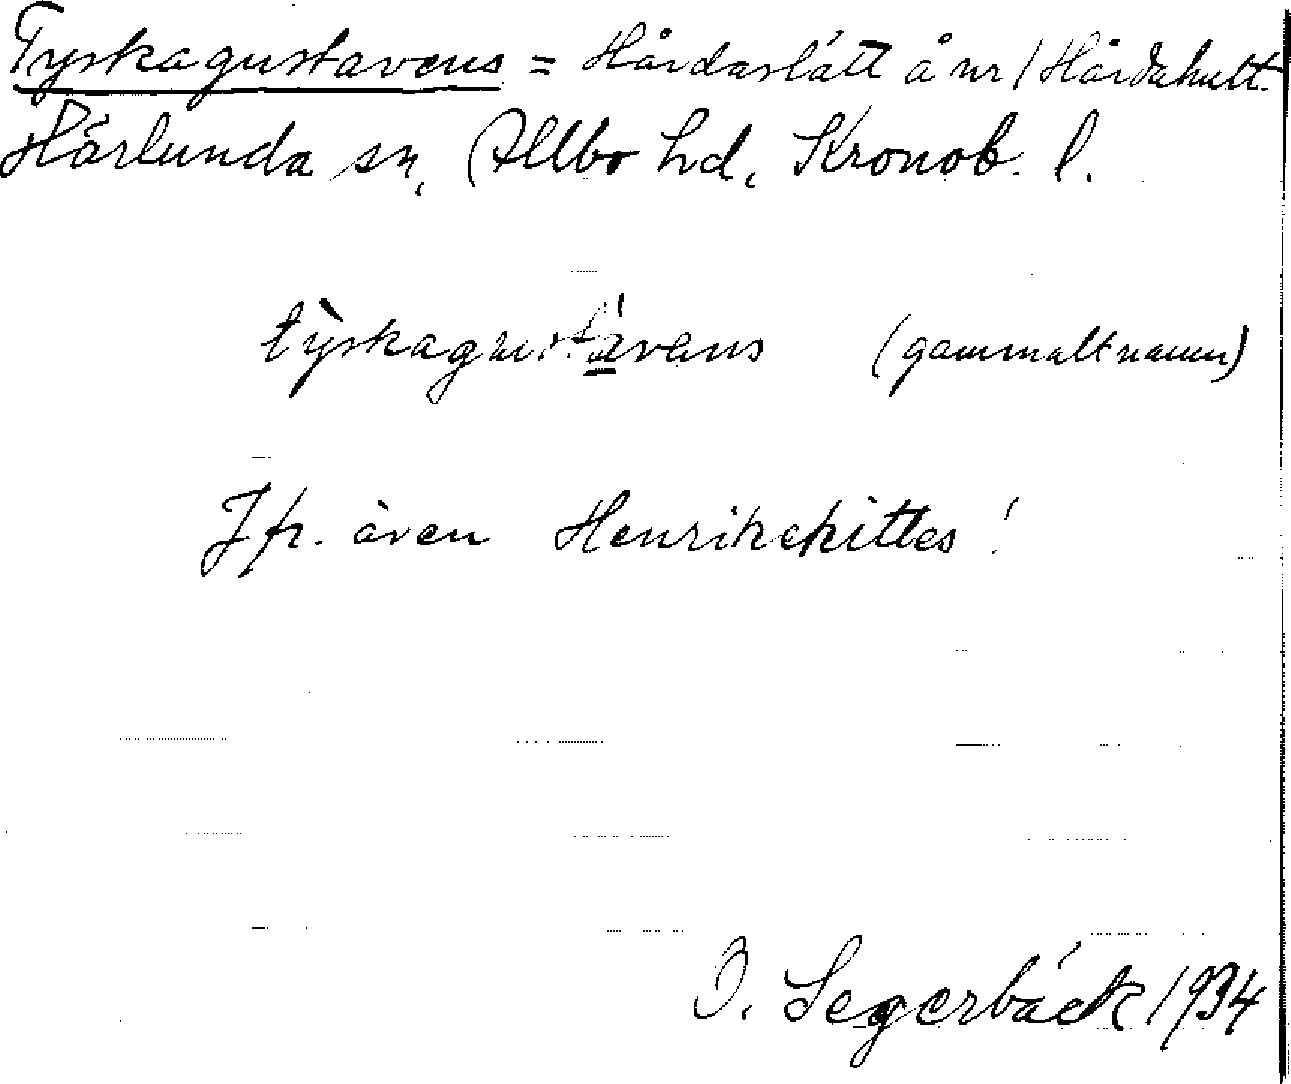 Tyskagustavens = Hårdaslätt å nr 1 Hårdahult.
Härlunda sn, Allbo hd, Kronob. l.
tỳskagustávens (gammalt namn)
Jfr. även Henrikekittes!
J. Segerbäck 1934